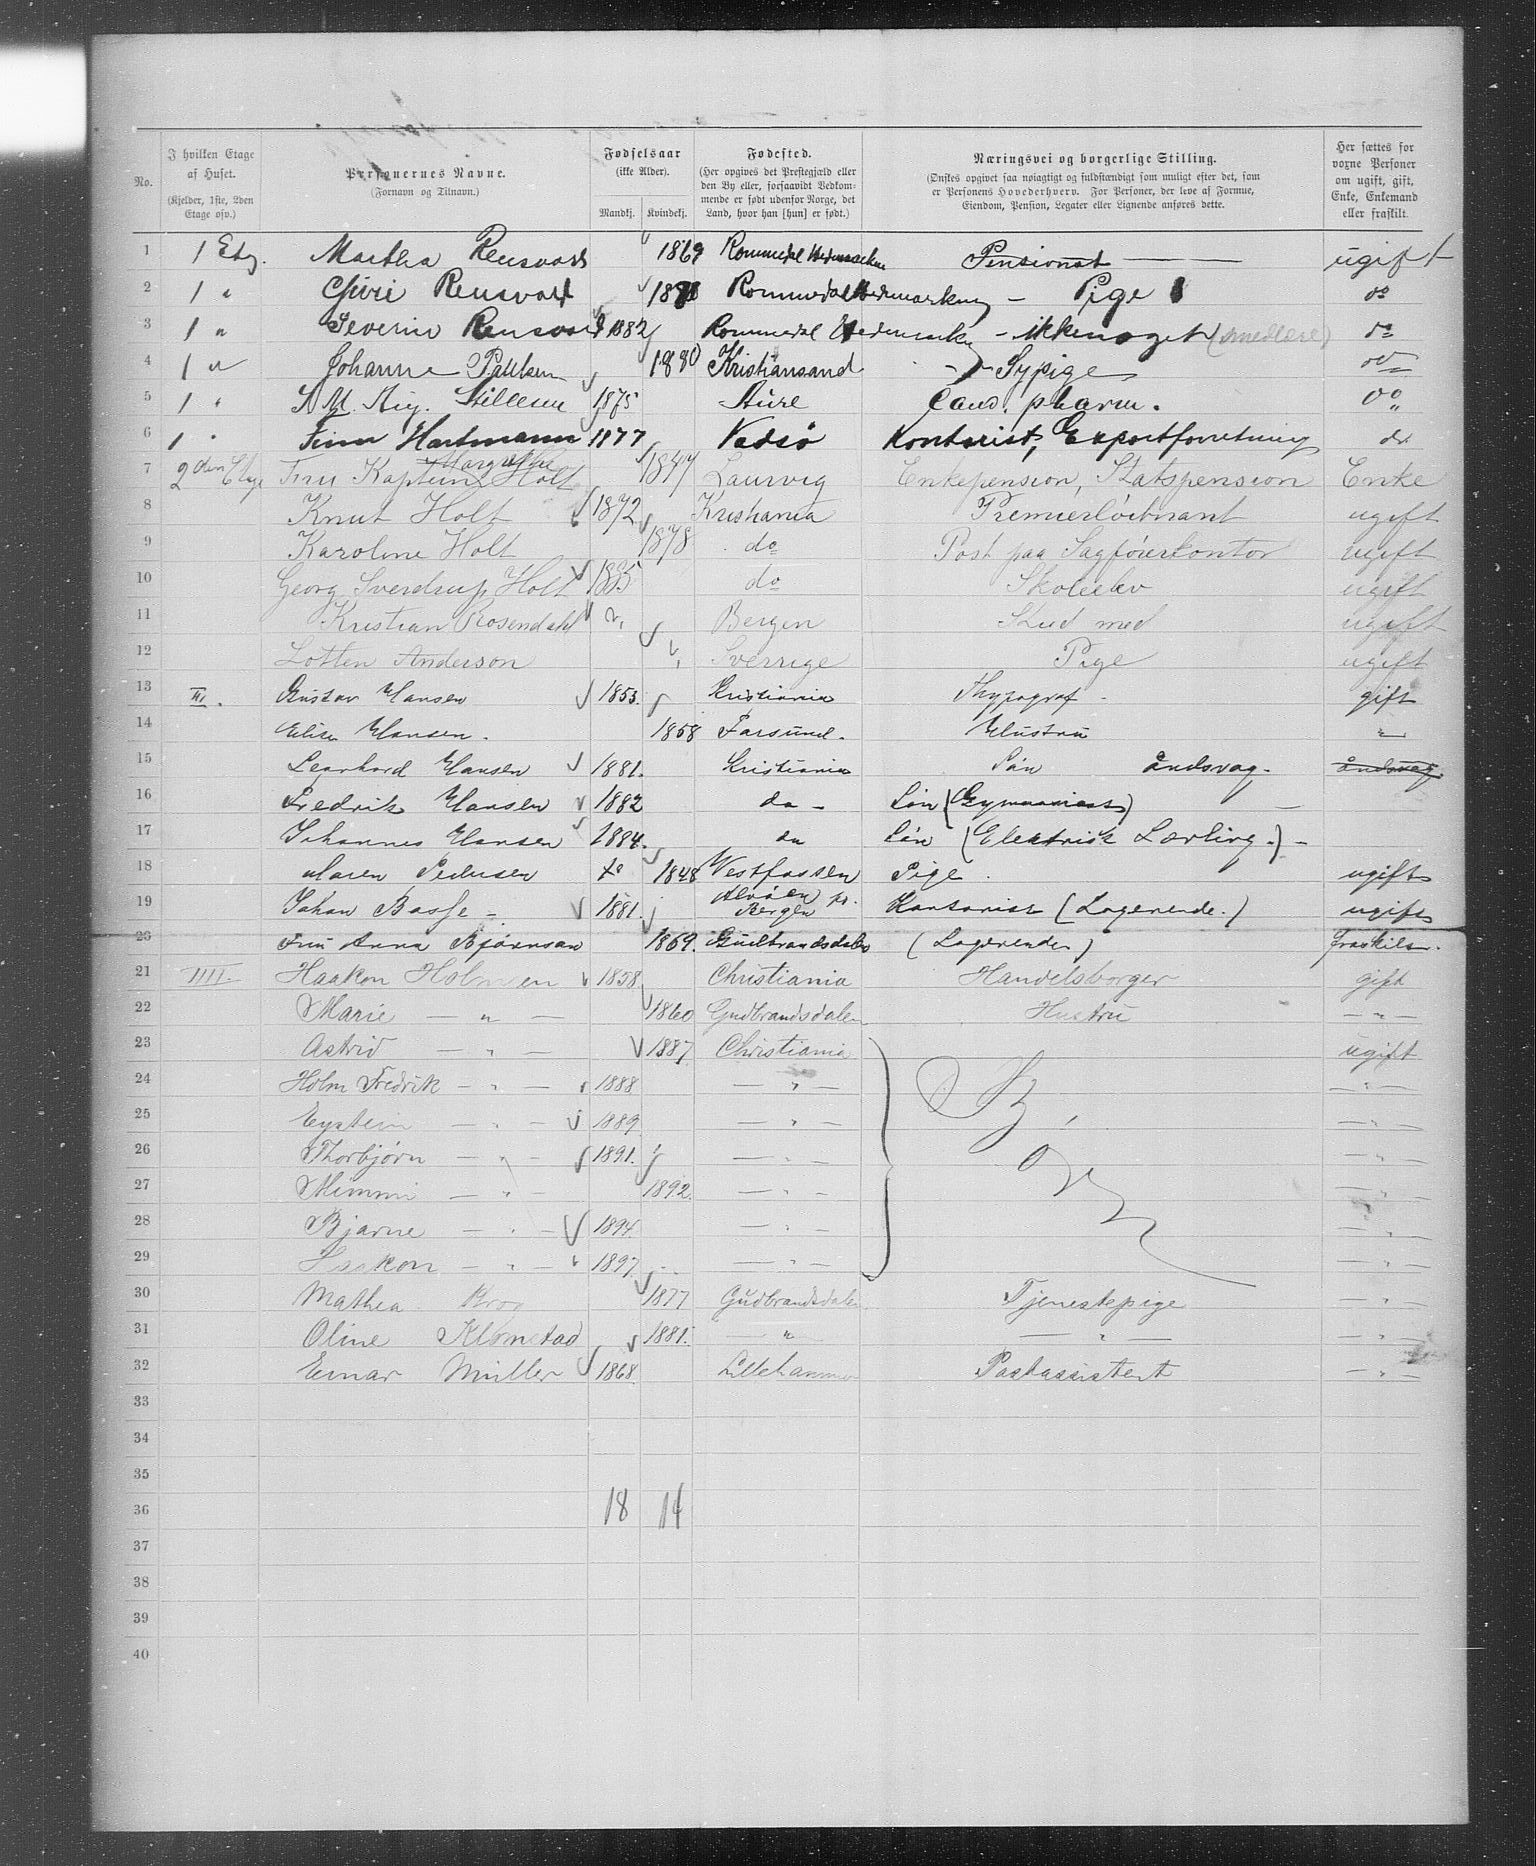 No.
I hvilken Etage af Huset.
(Kjelder, 1ste, 2den Etage osv.)
Personernes Navne.
(Fornavn og Tilnavn.)
Fødselsaar
(ikke Alder).
Mandkj. Kvindekj.
Fødested.
(Her opgives det Prestegjæld eller
den By eller, forsaavidt Vedkom-
mende er født udenfor Norge, det
Land, hvor han [hun] er født.)
Næringsvei og borgerlige Stilling.
(Ønskes opgivet saa nøiagtigt og fuldstændigt som muligt efter det, som
er Personens Hovederhverv. For Personer, der leve af Formue,
Eiendom, Pension, Legater eller Lignende anføres dette.
Her sættes for
voxne Personer
om ugift, gift,
Enke, Enkemand
eller fraskilt.
1 1 Etg. Martha Rensvold 1869 Rommedal Hedemarken Pensionat — ugift
2 1 " Rensvold Rommedal Hedemarken – Pige do
3 1 " Severin Rensvold 1882 Rommedal Hedemarken – ikke noget do
4 1 " Johanne Paulsen 1880 Kristiansand – Sypige do
5 1 " Aug. Stillesen 1875 Aure Cand. pharm. do
6 1 " Finn Hartmann 1877 Vadsø Kontorist, Exportforretning do
7 2den Etage Fru Kaptein Margrethe Holt 1847 Laurvig Enkepension, Statspension Enke
8 Knut Holt 1872 Kristiania Premierløitnant ugift
9 Karoline Holt 1878 do Post paa Sagførerkontor ugift
10 Georg Sverdrup Holt 1885 do Skoleelev ugift
11 Kristian Rosendahl Bergen Stud med ugift
12 Lotten Anderson Sverrige Pige ugift
13 III. Gustav Hansen 1853. Kristiania Thypograf - gift
14 Elise Hansen. 1858 Farsund. Hustru "
15 Leonhard Hansen 1881. Kristiania Søn åndsvag. åndsvag
16 Fredrik Hansen 1882 do – Søn (Gymnasiast) —
17 Johannes Hansen 1884. do Søn (Elektrisk Lærling.) –
18 Maren Pedersen 1848 Vestfossen Pige. ugift
19 Johan Basse – 1881. Alvøen pr. Bergen Kontorist (Logerende.) ugift
20 Fru Anna Bjørnson 1869. Gudbrandsdalen (Logerende) fraskilt.
21 IIII. Haakon Holmsen 1858 Christiania Handelsborger gift
22 Marie — " — 1860 Gudbrandsdalen Hustru — " —
23 Astrid — " — 1887 Christiania ugift
24 Holm Fredrik — " — 1888 — " — — " —
25 Eystein — " — 1889 — " — — " —
26 Thorbjørn — " — 1891. — " — — " —
27 Mimmi — " — 1892. — " — — " —
28 Bjarne — " — 1894. — " — — " —
29 Haakon — " — 1897 — " — — " —
30 Mathea Krog 1877 Gudbrandsdalen Tjenestepige — " —
31 Oline Klomstad 1881. — " — — " — — " —
32 Einar Müller 1868. Lillehammer Postassistent — " —
33
34
35
36 18 14
37
38
39
40